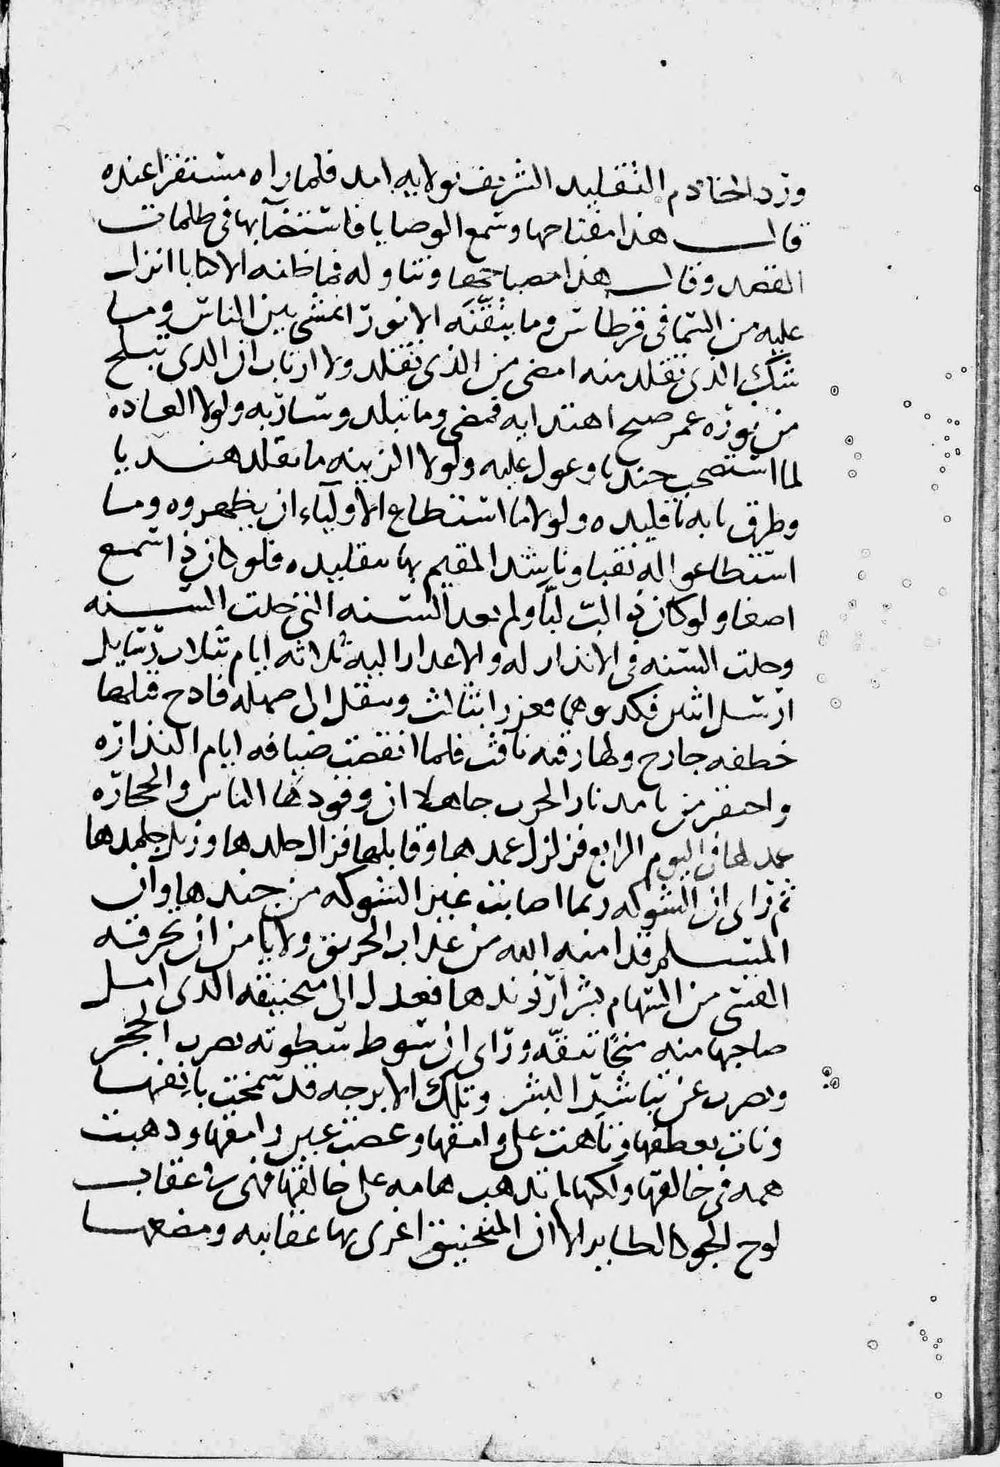 ورد الخادم التقليد الشريف بولايه امد فلما راه مستقرا عنده
قال هذا مفتاحها وسمع الوصايا فاستضآ بها فى ظلمات
القصد وقال هذا مصباحها وتناوله فما ظنه الا كتابا انزل
عليه من السما فى قرطاس وما يتقنه الا نورا يمشى بين الناس وما
شك الذى تقلد منه امضى من الذى تقلد ولا ارتاب ان الذى تبلج
من نوره عمر صبح اهتدا به فمضى وما تبلد وسار به ولولا العاده
لما استصحب جندبا وعول عليه ولولا الزينه ما تقلد هنديا
وطرق بابه باقليده ولولا ما استطاع الاوليآء ان يظهروه وما
استطاعوا له نقبا وناشد المقيم بها بتقليده فلو كان ذا سمع
اصغا ولو كان ذا لب لبّا ولم يعد السنه التى خلت السنه
وحلت السنه فى الانذار له والاعذار اليه ثلاثه ايام بثلاث رسايل
ارسل اثنين فكذبوهما فعزز بثالث وينقل الى جهله فادح فتلها
خطفه جارح وطارقه نافث فلما انقضت ضيافه ايام النذاره
واحتقر من بامد نار الحرب جاهلا ان وقودها الناس والحجاره
عمد لها فى اليوم الرابع فزلزل عمدها وقابلها فزال جلدها وزيل جلمدها
ثم راى ان الشوكه ربما اصابت غير الشوكه من جندها وان
المسلم قد امنه الله من عذاب الحريق ولا يامن ان تحرقه
القسى من السهام بشرار زندها فعدل الى منجنيقه الذى امل
صاحبها منه منجا تنقه وراى ان سوط سطوته يضرب الحجر
ويضرب عن بباشد البشر وتلك الابرجه قد شمخت بانفها
ونات بعطفها وتاهت على وامقها وغضت عين رامقها وذهبت
همه فى خالقها ولكنها لم تذهب هامه على خالقها فهى فى عقاب
لوح الجو كالطاير الا ان المنجنيق اغرى بها عقابيه ومضغها